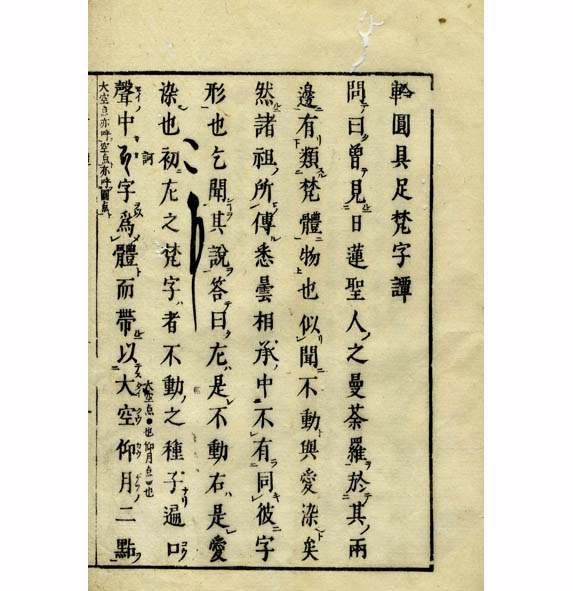 輪圓具足梵字譚
問曰曾見日蓮聖人之曼荼羅於其兩
邊有類梵體物也似聞不動與愛染矣
然諸祖所傳悉曇相承中不有同彼字
形也乞聞其說答曰左是不動右是愛
染也初左之梵字者不動之種子遍口
聲中字為體而帶以大空仰月二點
大空点●也仰月点也
大空点亦呼空点亦呼圓点